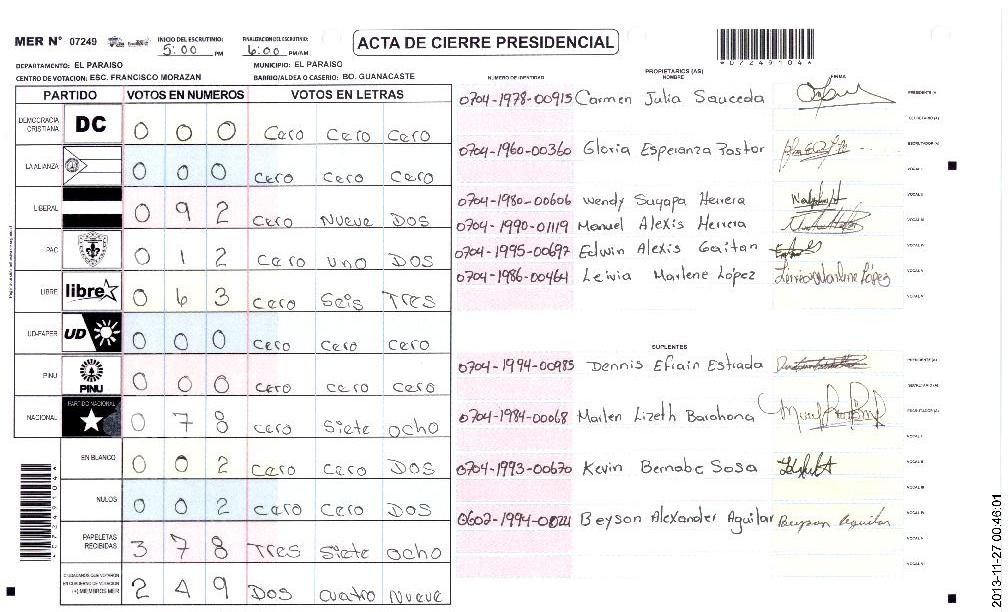 MER N° 07249
INICIO DEL ESCRUTINIO: 5:00 PM
FINALIZACION DEL ESCRUTINIO: 6:00 PM/AM
ACTA DE CIERRE PRESIDENCIAL
*07249104*
DEPARTAMENTO: EL PARAISO
MUNICIPIO: EL PARAISO
CENTRO DE VOTACION: ESC. FRANCISCO MORAZAN
BARRIO/ALDEA O CASERIO: BO. GUANACASTE
PARTIDO VOTOS EN NUMEROS VOTOS EN LETRAS
DEMOCRACIA CRISTIANA DC 0 0 0 Cero Cero Cero
LA ALIANZA 0 0 0 Cero Cero Cero
LIBERAL 0 9 2 Cero Nueve Dos
PAC 0 1 2 Cero uno Dos
LIBRE libre 0 6 3 Cero Seis Tres
UD-FAPER UD 0 0 0 Cero Cero Cero
PINU PINU 0 0 0 Cero cero Cero
NACIONAL PARTIDO NACIONAL 0 7 8 Cero Siete ocho
EN BLANCO 0 0 2 Cero Cero DOS
NULOS 0 0 2 Cero Cero DOS
PAPELETAS RECIBIDAS 3 7 8 Tres Siete ocho
CIUDADANOS QUE VOTARON EN CUADERNO DE VOTACION (+) MIEMBROS MER 2 4 9 Dos cuatro Nueve
PROPIETARIOS (AS)
NUMERO DE IDENTIDAD NOMBRE FIRMA
0704-1978-00915 Carmen Julia Sauceda PRESIDENTE (A)
SECRETARIO (A)
0704-1960-00360 Gloria Esperanza Pastor ESCRUTADOR (A)
VOCAL I
0704-1980-00606 Wendy Suyapa Herrera VOCAL II
0704-1990-01119 Manuel Alexis Herrera VOCAL III
0704-1995-00697 Edwin Alexis Gaitan VOCAL IV
0704-1986-00464 Leivia Marlene López VOCAL V
VOCAL VI
SUPLENTES
0704-1994-00985 Dennis Efrain Estrada PRESIDENTE (A)
SECRETARIO (A)
0704-1984-00068 Marlen Lizeth Barahona ESCRUTADOR (A)
VOCAL I
0704-1993-00670 Kevin Bernabe Sosa VOCAL II
VOCAL III
0602-1994-00 Beyson Alexander Aguilar Beyson Aguilar VOCAL IV
VOCAL V
VOCAL VI
2013-11-27 00:46:01